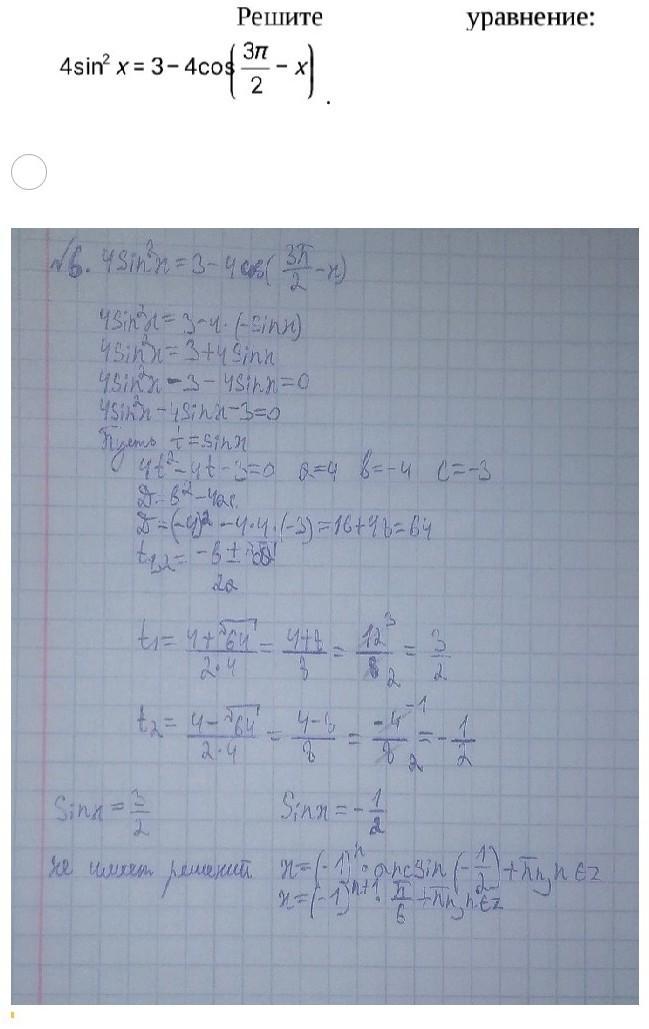 Решите уравнение:
4sin² x = 3 − 4cos(3π/2 − x).
№6. 4sin²x = 3 − 4cos(3π/2 − x)
4sin²x = 3 − 4·(−sinx)
4sin²x = 3 + 4sinx
4sin²x − 3 − 4sinx = 0
4sin²x − 4sinx − 3 = 0
Пусть t = sinx
4t² − 4t − 3 = 0 a=4 b=−4 c=−3
D = b² − 4ac
D = (−4)² − 4·4·(−3) = 16 + 48 = 64
t₁,₂ = (−b ± √D)/2a
t₁ = (4 + √64)/(2·4) = (4+8)/8 = 12/8 = 3/2
t₂ = (4 − √64)/(2·4) = (4−8)/8 = −4/8 = −1/2
Sinx = 3/2 Sinx = −1/2
не имеет решений x = (−1)ⁿ · arcsin(−1/2) + πn, n∈Z
x = (−1)ⁿ⁺¹ · π/6 + πn, n∈Z